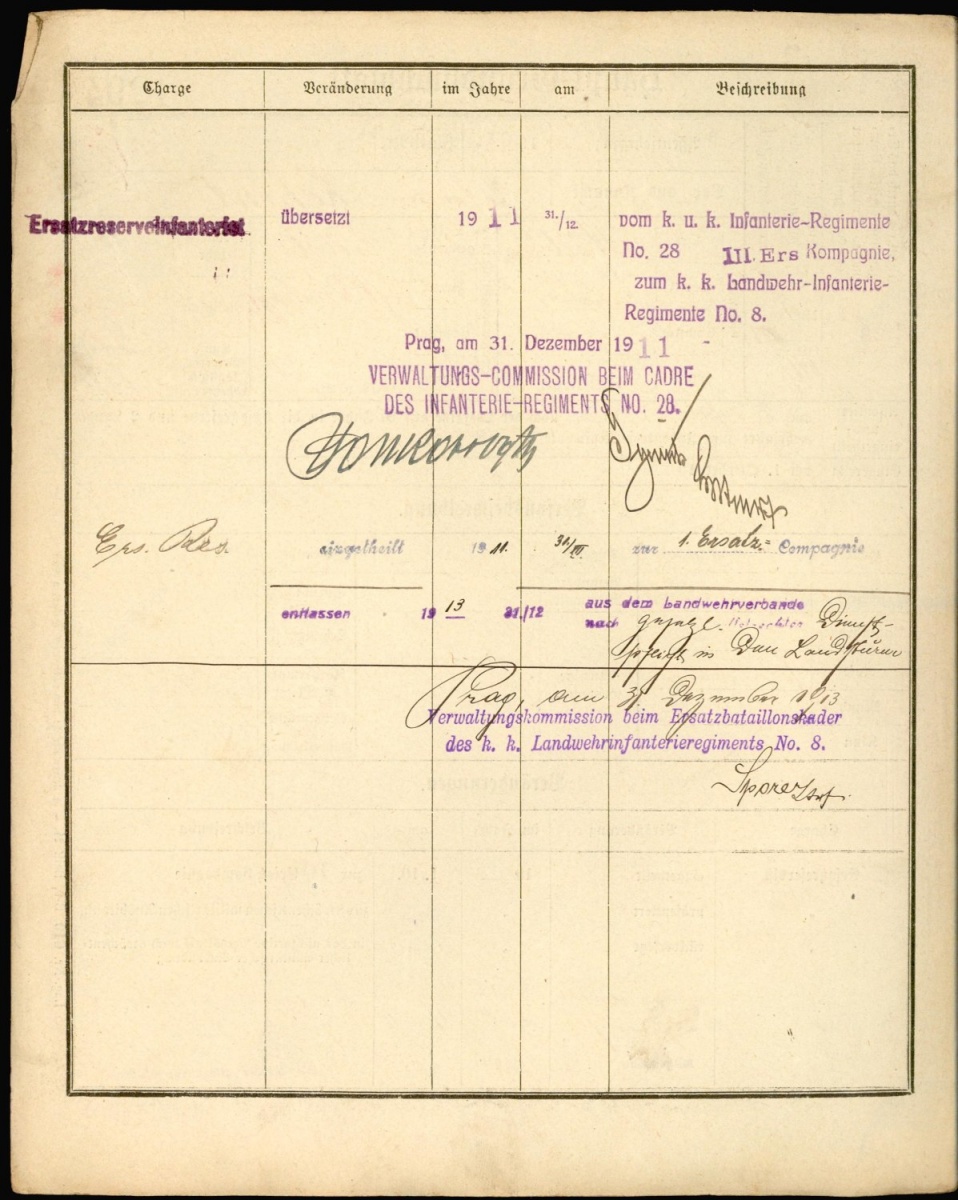 Charge Veränderung im Jahre am Beschreibung
Ersatzreserveinfanterist übersetzt 1911 31./12. vom k. u. k. Infanterie-Regimente
No. 28 III. Ers Kompagnie,
zum k. k. Landwehr-Infanterie-
Regimente No. 8.
Prag, am 31. Dezember 1911
VERWALTUNGS-COMMISSION BEIM CADRE
DES INFANTERIE-REGIMENTS NO. 28.
Ers. Res. eingetheilt 1911. 31/XII zur 1. Ersatz- Compagnie
entlassen 1913 31/12 aus dem Landwehrverbande
nach gesetzl. Dienst-
pflicht in den Landsturm
Prag, am 31. Dezember 1913
Verwaltungskommission beim Ersatzbataillonskader
des k. k. Landwehrinfanterieregiments No. 8.